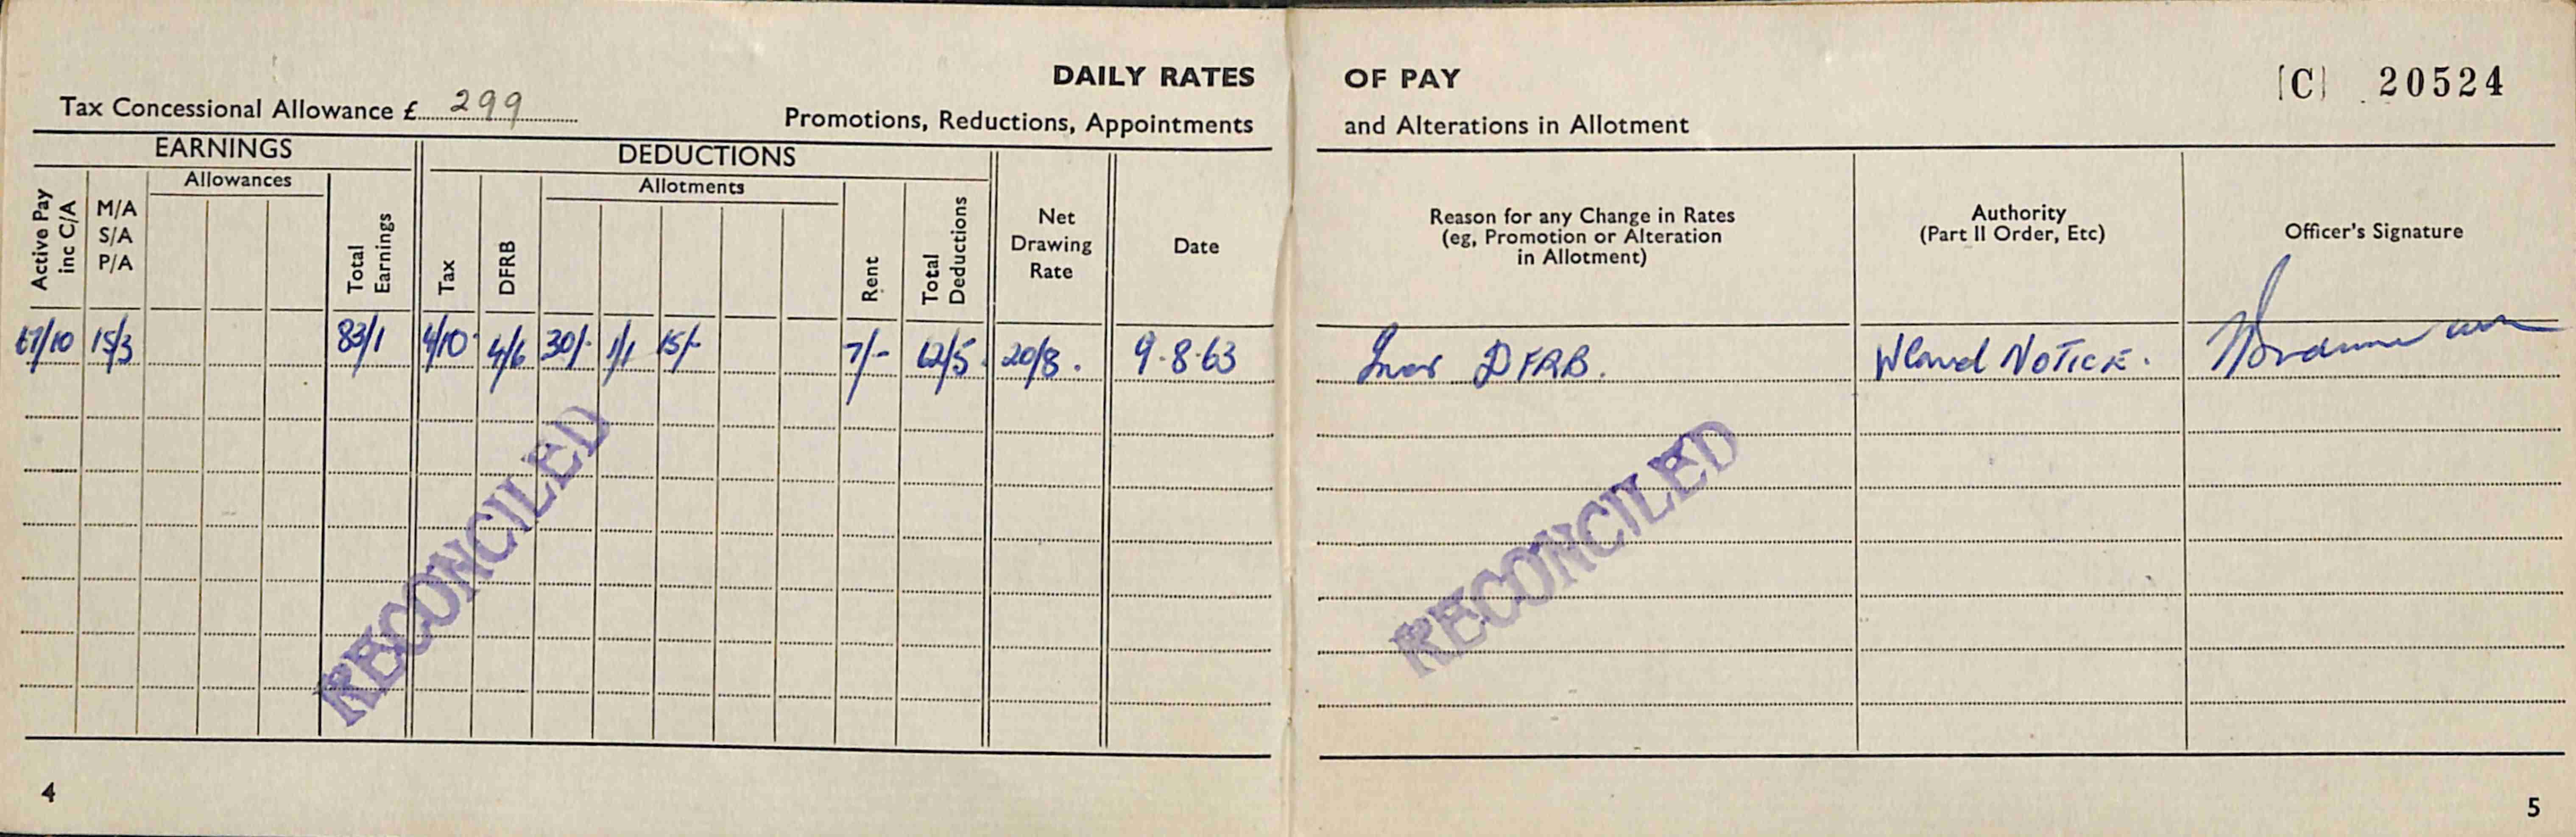 DAILY RATES OF PAY
[C] 20524
Tax Concessional Allowance £ 299
Promotions, Reductions, Appointments and Alterations in Allotment
EARNINGS
DEDUCTIONS
Allowances
Allotments
Active Pay inc C/A
M/A
S/A
P/A
Total Earnings
Tax
DFRB
Rent
Total Deductions
Net Drawing Rate
Date
Reason for any Change in Rates
(eg, Promotion or Alteration
in Allotment)
Authority
(Part II Order, Etc)
Officer's Signature
67/10 15/3 83/1 4/10 4/6 30/- 1/1 15/- 7/- 62/5 20/8 . 9.8.63 DFRB. NOTICE.
RECONCILED
RECONCILED
4
5